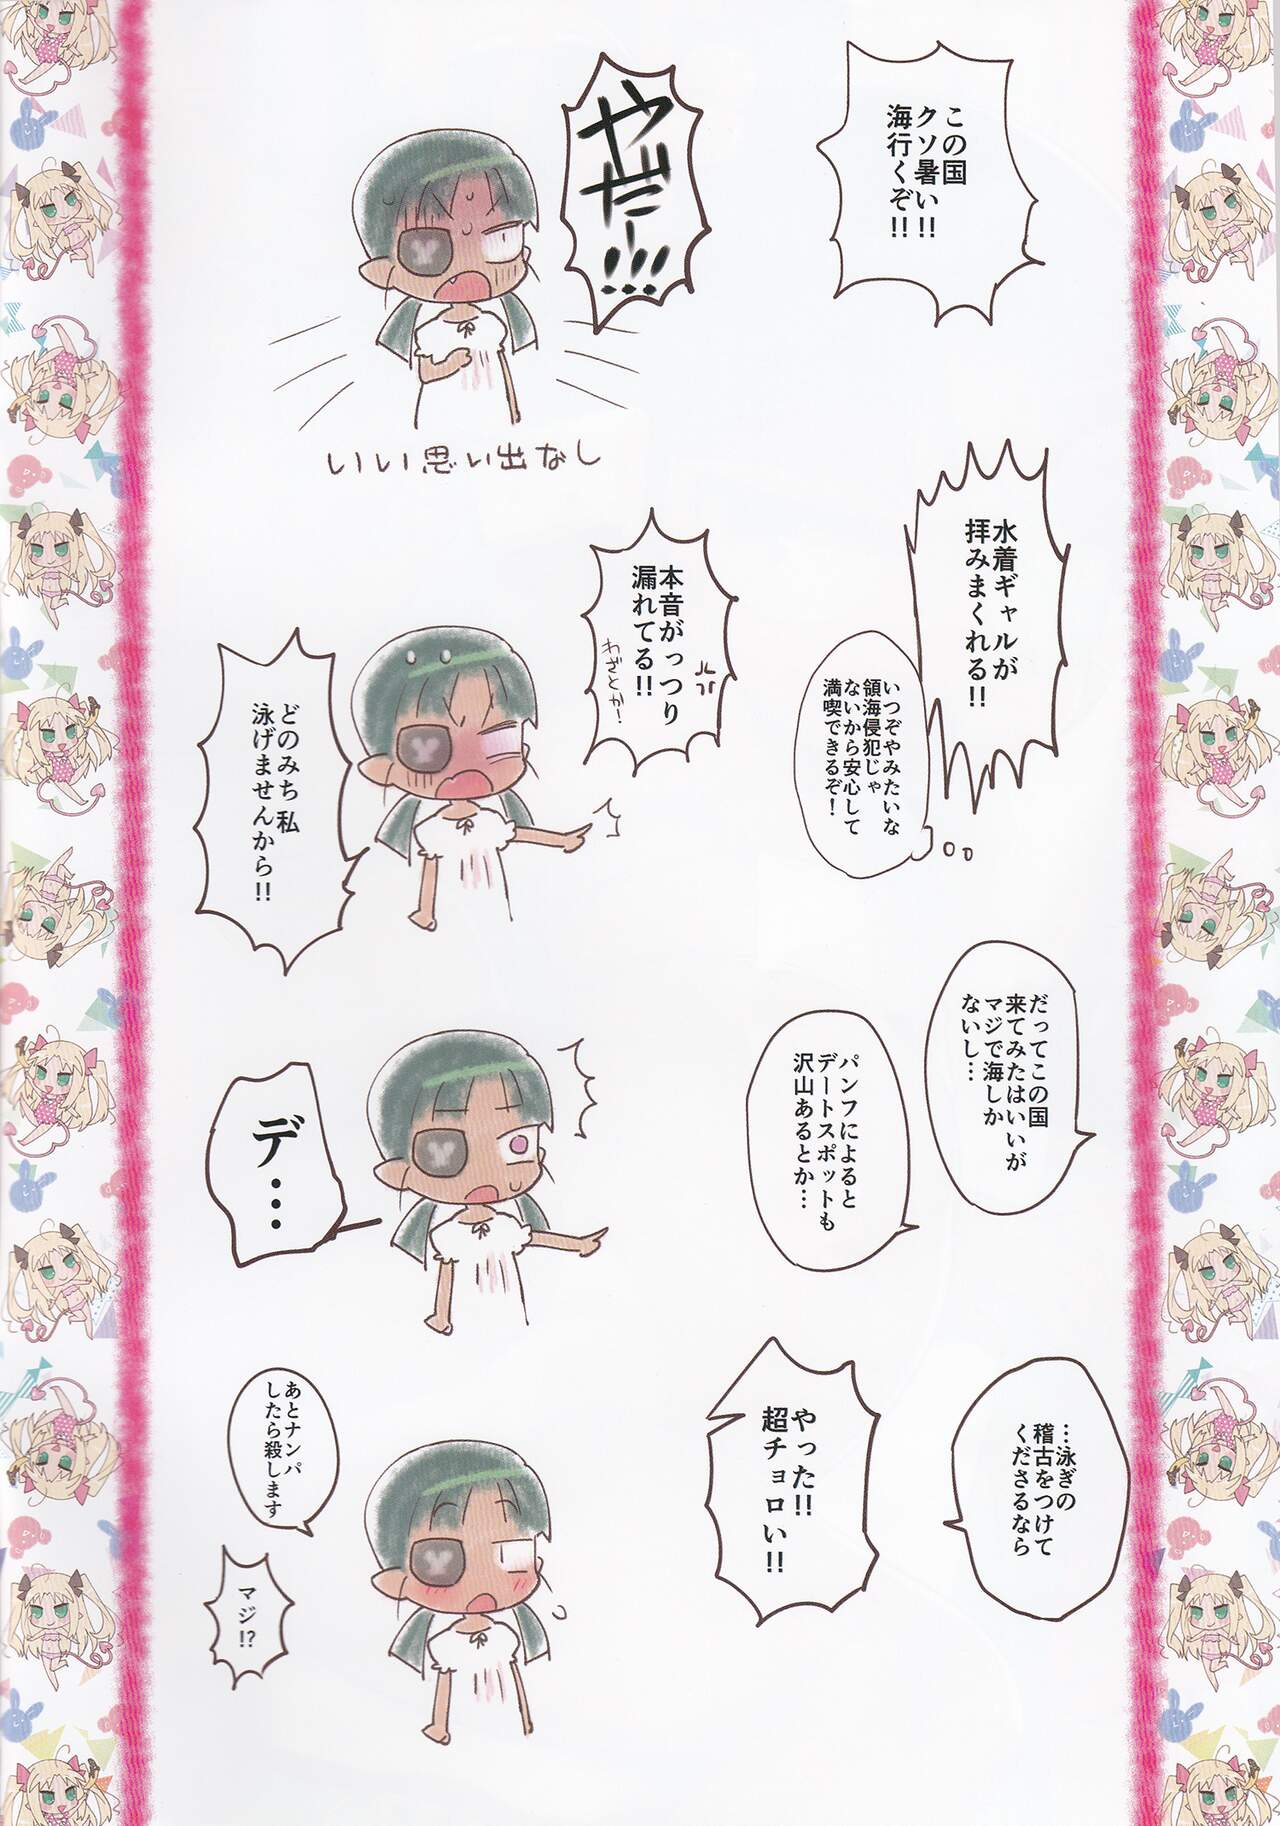 この国
クソ暑い!!
海行くぞ!!
やだー!!!
いい思い出なし
水着ギャルが
拝みまくれる!!
いつぞやみたいな
領海侵犯じゃ
ないから安心して
満喫できるぞ！
本音がっつり
漏れてる!!
わざとか！
どのみち私
泳げませんから!!
だってこの国
来てみたはいいが
マジで海しか
ないし…
パンフによると
デートスポットも
沢山あるとか…
デ…
…泳ぎの
稽古をつけて
くださるなら
やった!!
超チョロい!!
あとナンパ
したら殺します
マジ!?